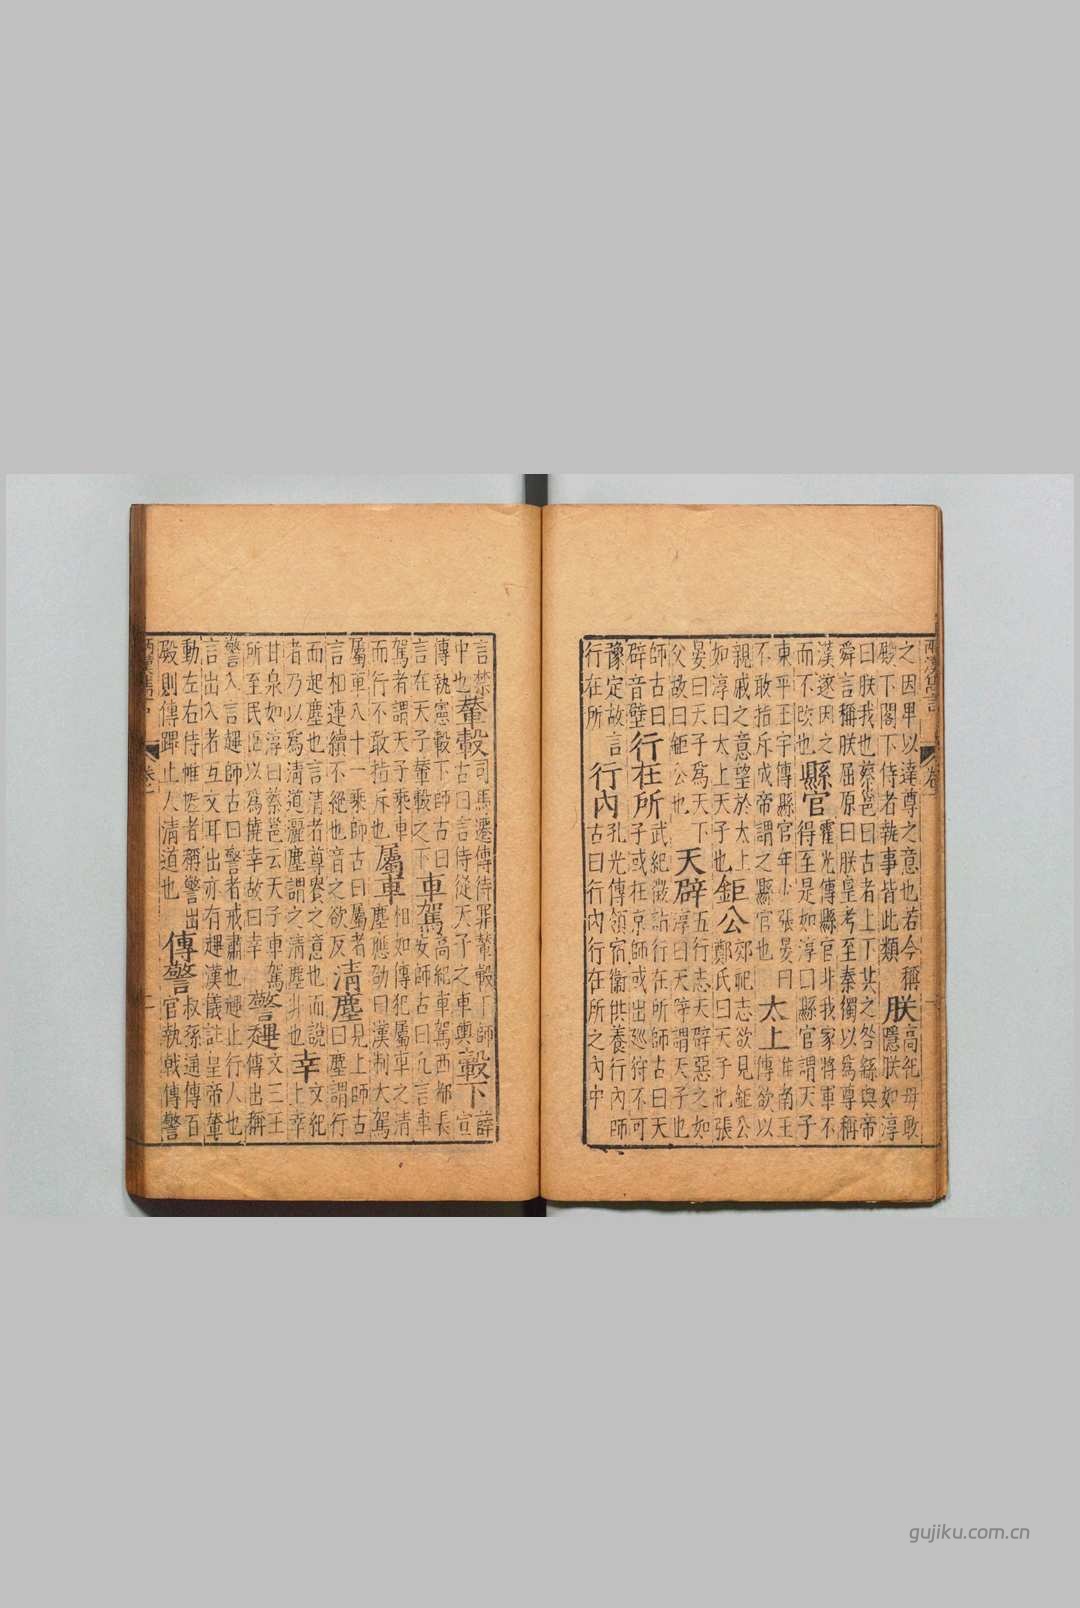 兩漢雋言
卷一
之因卑以達尊之意也若今稱
殿下閣下侍者執事皆此類
朕
高紀毋敢
隱朕如淳
曰朕我也蔡邕曰古者上下共之咎繇與帝
舜言稱朕屈原曰朕皇考至秦獨以爲尊稱
漢遂因之
而不改也
縣官
霍光傳縣官非我家將軍不
得至是如淳曰縣官謂天子
東平王宇傳縣官年少張晏曰
不敢指斥成帝謂之縣官也
太上
淮南王
傳欲以
親戚之意望於太上
如淳曰太上天子也
鉅公
郊祀志欲見鉅公
鄭氏曰天子也張
晏曰天子爲天下
父故曰鉅公也
天辟
五行志天辟惡之如
淳曰天等謂天子也
師古曰
辟音壁
行在所
武紀徵詣行在所師古曰天
子或在京師或出巡狩不可
豫定故言
行在所
行內
孔光傳領宿衛供養行內師
古曰行內行在所之內中
言禁
中也
輦轂
司馬遷傳待罪輦轂下師
古曰言侍從天子之車輿
轂下
薛
宣
傳執憲轂下師古曰
言在天子輦轂之下
車駕
高紀車駕西都長
安師古曰凡言車
駕者謂天子乘車
而行不敢指斥也
屬車
相如傳犯屬車之清
塵應劭曰漢制大駕
屬車八十一乘師古曰屬者
言相連續不絕也音之欲反
清塵
見上師古
曰塵謂行
而起塵也言清者尊貴之意也而說
者乃以爲清道灑塵謂之清塵非也
幸
文紀
上幸
甘泉如淳曰蔡邕云天子車駕
所至民臣以爲僥幸故曰幸
警趩
文三王
傳出稱
警入言趩師古曰警者戒肅也趩止行人也
言出入者互文耳出亦有趩漢儀註皇帝輦
動左右侍帷幄者稱警出
殿則傳蹕止人清道也
傳警
叔孫通傳百
官執戟傳警
兩漢雋言
卷一
gujiku.com.cn